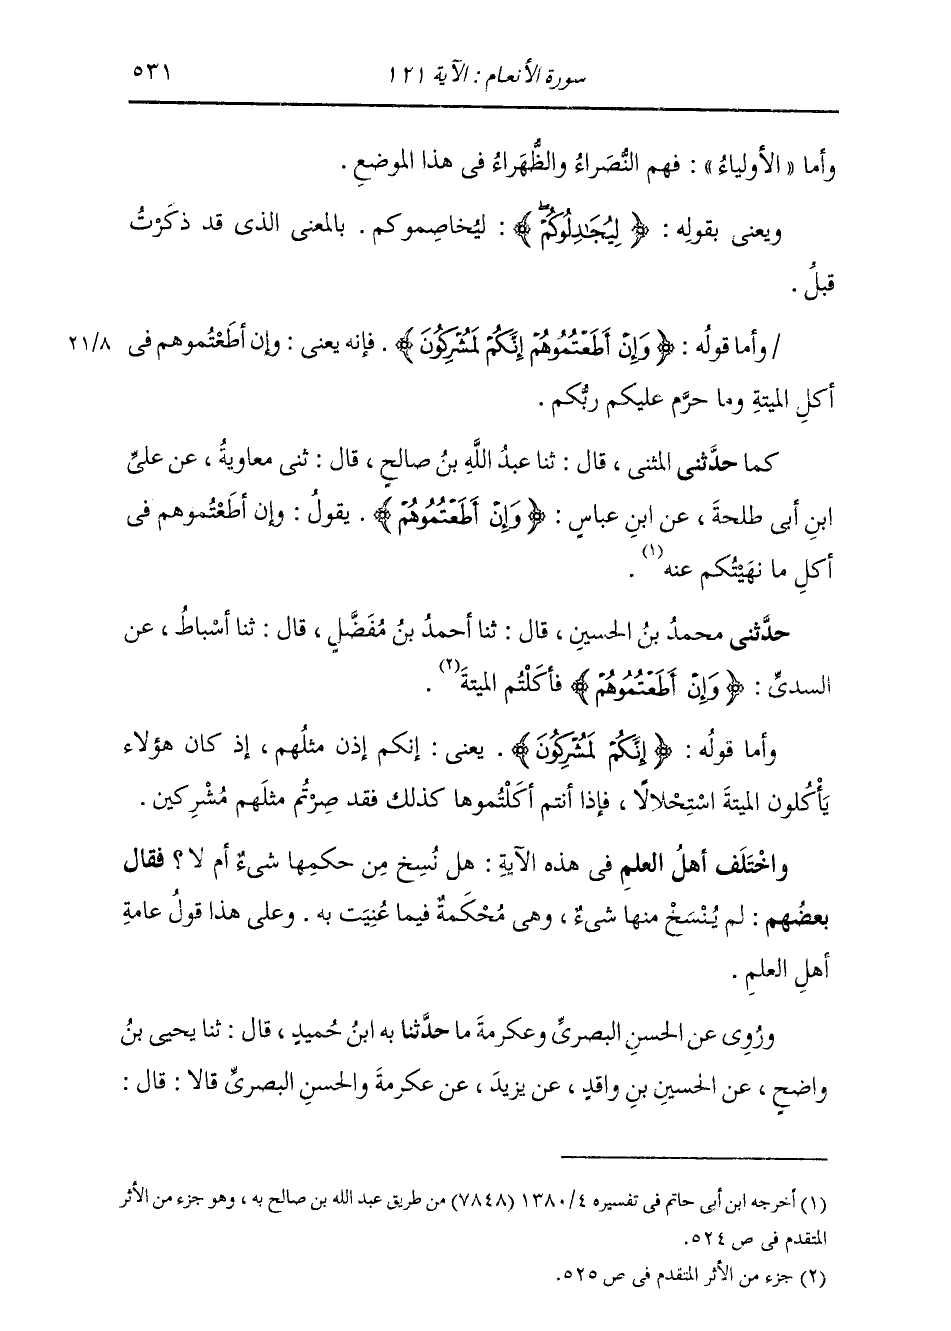 سورة الأنعام : الآية ١٢١ ٥٣١
وأما « الأولياءُ » : فهم النُّصَراءُ والظُّهَراءُ فى هذا الموضعِ .
ويعنى بقولِه : ﴿ لِيُجَٰدِلُوكُمْۖ ﴾ : ليُخاصِموكم . بالمعنى الذى قد ذكَرْتُ
قبلُ .
/ وأما قولُه : ﴿ وَإِنْ أَطَعْتُمُوهُمْ إِنَّكُمْ لَمُشْرِكُونَ ﴾ . فإنه يعنى : وإن أطَعْتُموهم فى ٢١/٨
أكلِ الميتةِ وما حرَّم عليكم ربُّكم .
كما حدَّثنى المثنى ، قال : ثنا عبدُ اللَّهِ بنُ صالحٍ ، قال : ثنى معاويةُ ، عن علىِّ
ابنِ أبى طلحةَ ، عن ابنِ عباسٍ : ﴿ وَإِنْ أَطَعْتُمُوهُمْ ﴾ . يقولُ : وإن أطَعْتُموهم فى
أكلِ ما نهَيْتُكم عنه(١) .
حدَّثنى محمدُ بنُ الحسينِ ، قال : ثنا أحمدُ بنُ مُفَضَّلٍ ، قال : ثنا أسْباطُ ، عن
السدىِّ : ﴿ وَإِنْ أَطَعْتُمُوهُمْ ﴾ فأكَلْتُم الميتةَ(٢) .
وأما قولُه : ﴿ إِنَّكُمْ لَمُشْرِكُونَ ﴾ . يعنى : إنكم إذن مثلُهم ، إذ كان هؤلاء
يَأْكُلون الميتةَ اسْتِحْلالًا ، فإذا أنتم أكَلْتُموها كذلك فقد صِرْتُم مثلَهم مُشْرِكين .
واخْتَلَف أهلُ العلمِ فى هذه الآيةِ : هل نُسِخ مِن حكمِها شىءٌ أم لا ؟ فقال
بعضُهم : لم يُنْسَخْ منها شىءٌ ، وهى مُحْكَمةٌ فيما عُنِيَت به . وعلى هذا قولُ عامةِ
أهلِ العلمِ .
ورُوِى عن الحسنِ البصرىِّ وعكرمةَ ما حدَّثنا به ابنُ حُميدٍ ، قال : ثنا يحيى بنُ
واضحٍ ، عن الحسينِ بنِ واقدٍ ، عن يزيدَ ، عن عكرمةَ والحسنِ البصرىِّ قالا : قال :
(١) أخرجه ابن أبى حاتم فى تفسيره ١٣٨٠/٤ (٧٨٤٨) من طريق عبد الله بن صالح به ، وهو جزء من الأثر
المتقدم فى ص ٥٢٤.
(٢) جزء من الأثر المتقدم فى ص ٥٢٥.